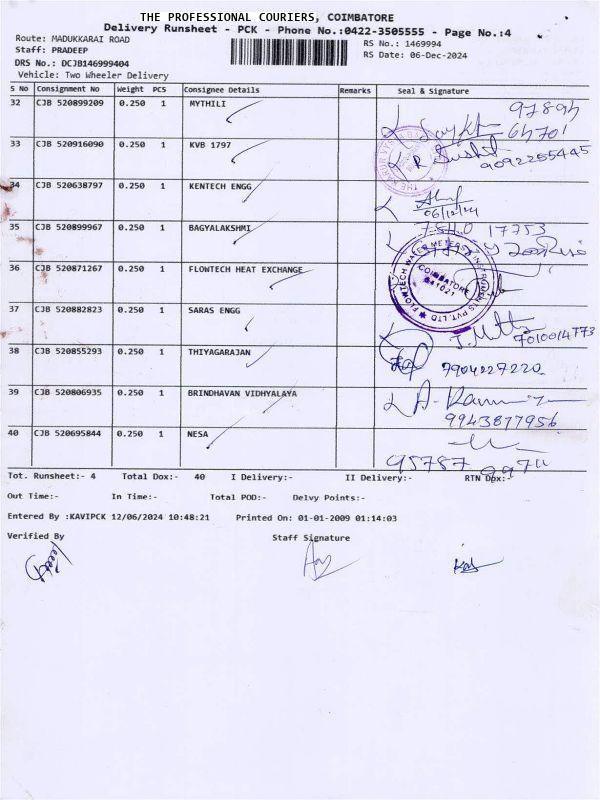 THE PROFESSIONAL COURIERS, COIMBATORE
Delivery Runsheet - PCK - Phone No.:0422-3505555 - Page No.:4
Route: MADUKKARAI ROAD
RS No.: 1469994
Staff: PRADEEP
RS Date: 06-Dec-2024
DRS No.: DCJB146999404
Vehicle: Two Wheeler Delivery
S No Consignment No Weight PCS Consignee Details Remarks Seal & Signature
32 CJB 520899209 0.250 1 MYTHILI
33 CJB 520916090 0.250 1 KVB 1797
9092255445
34 CJB 520638797 0.250 1 KENTECH ENGG
06/12/24
35 CJB 520899967 0.250 1 BAGYALAKSHMI
36 CJB 520871267 0.250 1 FLOWTECH HEAT EXCHANGE
FLOWTECH WATER METERS INSTRUMENTS PVT. LTD
COIMBATORE
641021
37 CJB 520882823 0.250 1 SARAS ENGG
7010014773
38 CJB 520855293 0.250 1 THIYAGARAJAN
7904227220
39 CJB 520806935 0.250 1 BRINDHAVAN VIDHYALAYA
9943877956
40 CJB 520695844 0.250 1 NESA
95787
Tot. Runsheet:- 4 Total Dox:- 40 I Delivery:- II Delivery:- RTN Dox:-
Out Time:- In Time:- Total POD:- Delvy Points:-
Entered By :KAVIPCK 12/06/2024 10:48:21 Printed On: 01-01-2009 01:14:03
Verified By Staff Signature